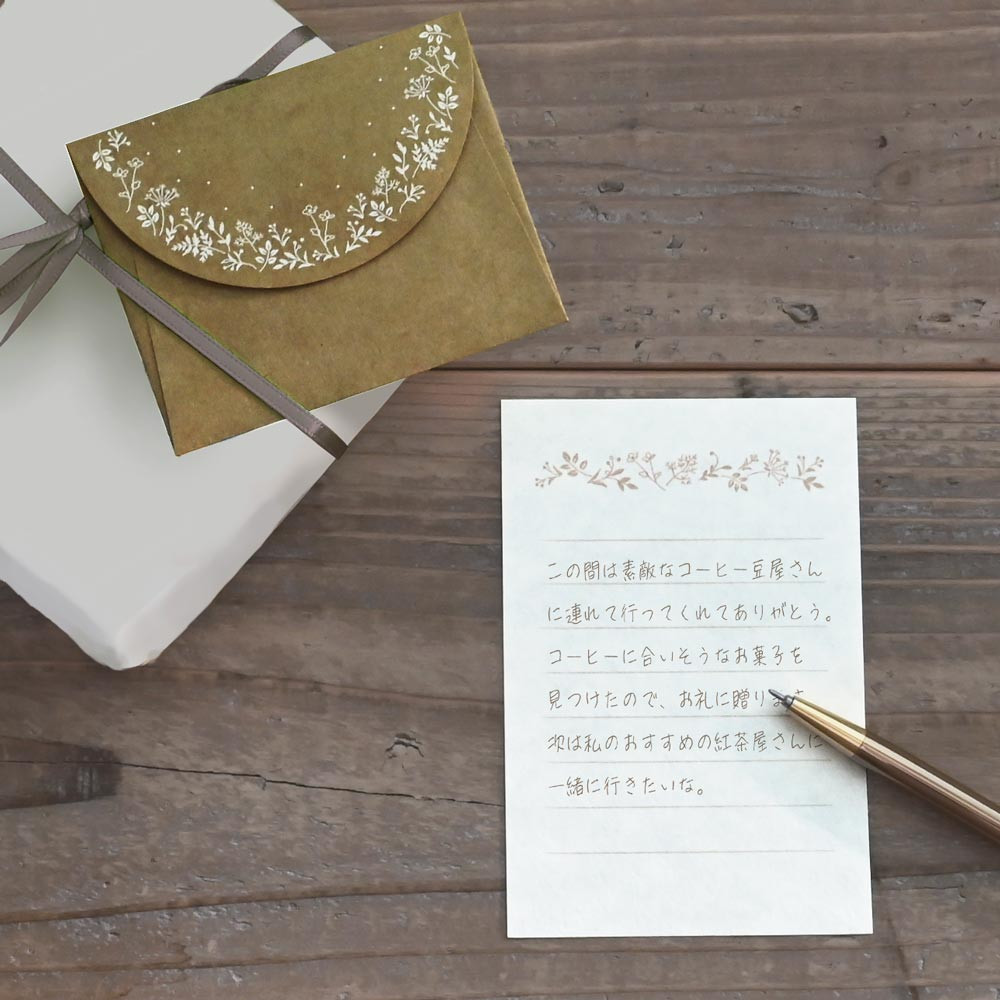 この間は素敵なコーヒー豆屋さん
に連れて行ってくれてありがとう。
コーヒーに合いそうなお菓子を
見つけたので、お礼に贈ります
次は私のおすすめの紅茶屋さんに
一緒に行きたいな。